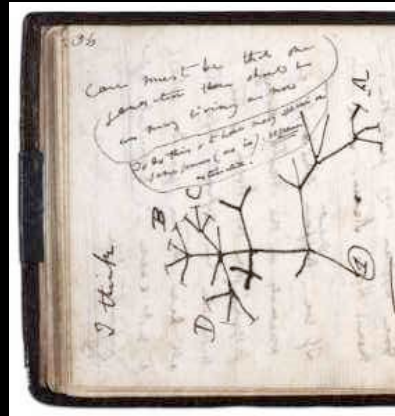 36
I think
case must be that one
generation then should be
as many living as now
To do this & to have many species in
same genus (as is). requires
extinction.
A
B
C
D
1